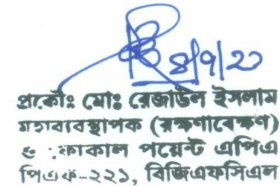 ৪/৭/২১
প্রকৌঃ মোঃ রেজাউল ইসলাম
মহাব্যবস্থাপক (রক্ষণাবেক্ষণ)
ও ফোকাল পয়েন্ট এপিএ
পিএফ-২২১, বিজিএফসিএল